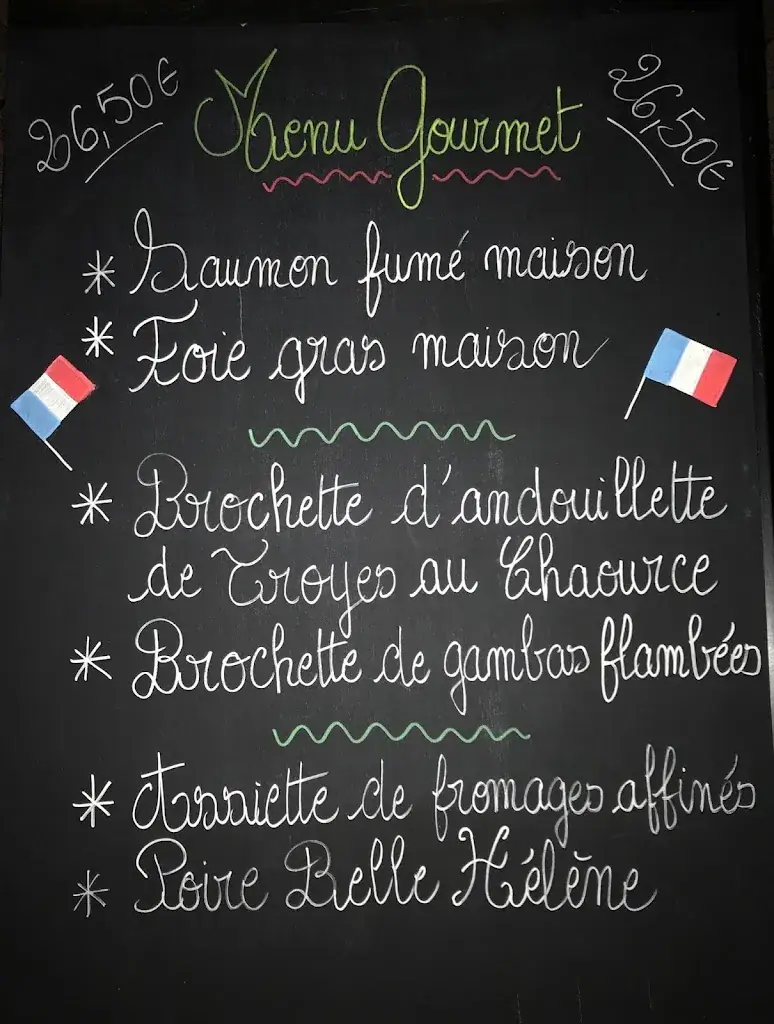 26,50€ Menu Gourmet 26,50€
* Saumon fumé maison
* Foie gras maison
* Brochette d'andouillette
de Troyes au Chaource
* Brochette de gambas flambées
* Assiette de fromages affinés
* Poire Belle Hélène